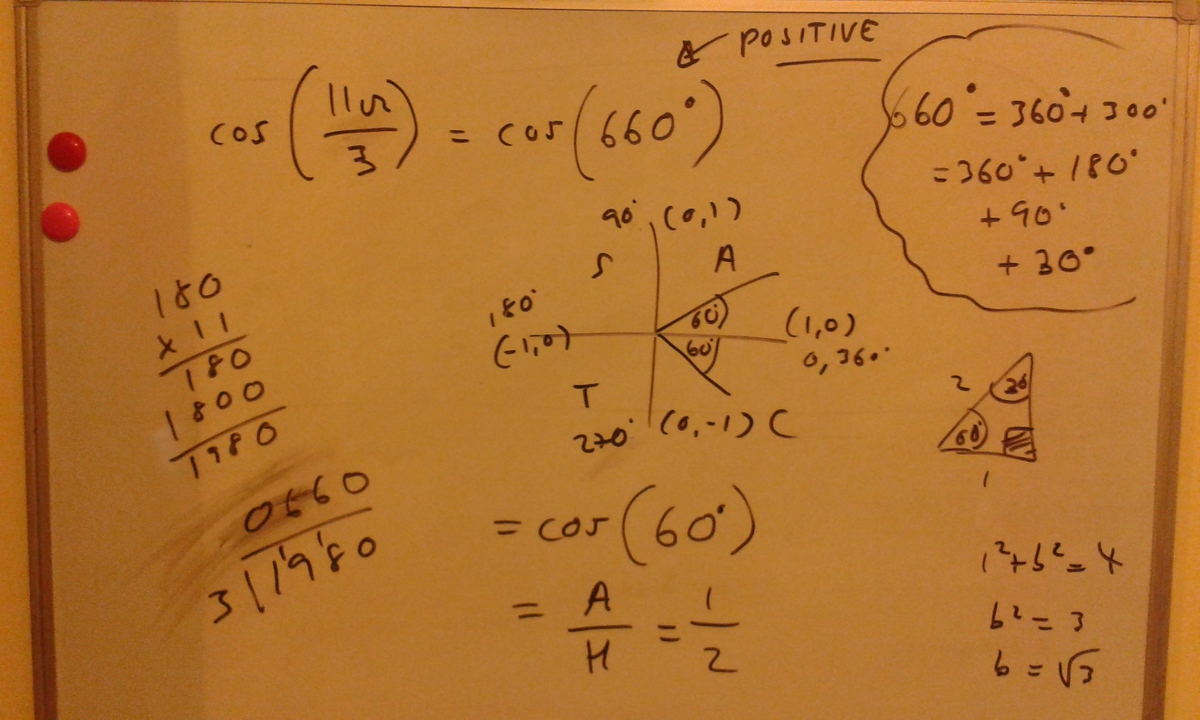 POSITIVE
cos(11π/3) = cos(660°)
660° = 360° + 300°
= 360° + 180°
+ 90°
+ 30°
90° (0,1)
S A
180° 60° (1,0)
(-1,0) 60° 0, 360°
T
270° (0,-1) C
180
x 11
180
1800
1980
0660
3 1980
2 30
60°
1
= cos(60°)
= A/H = 1/2
1² + b² = 4
b² = 3
b = √3